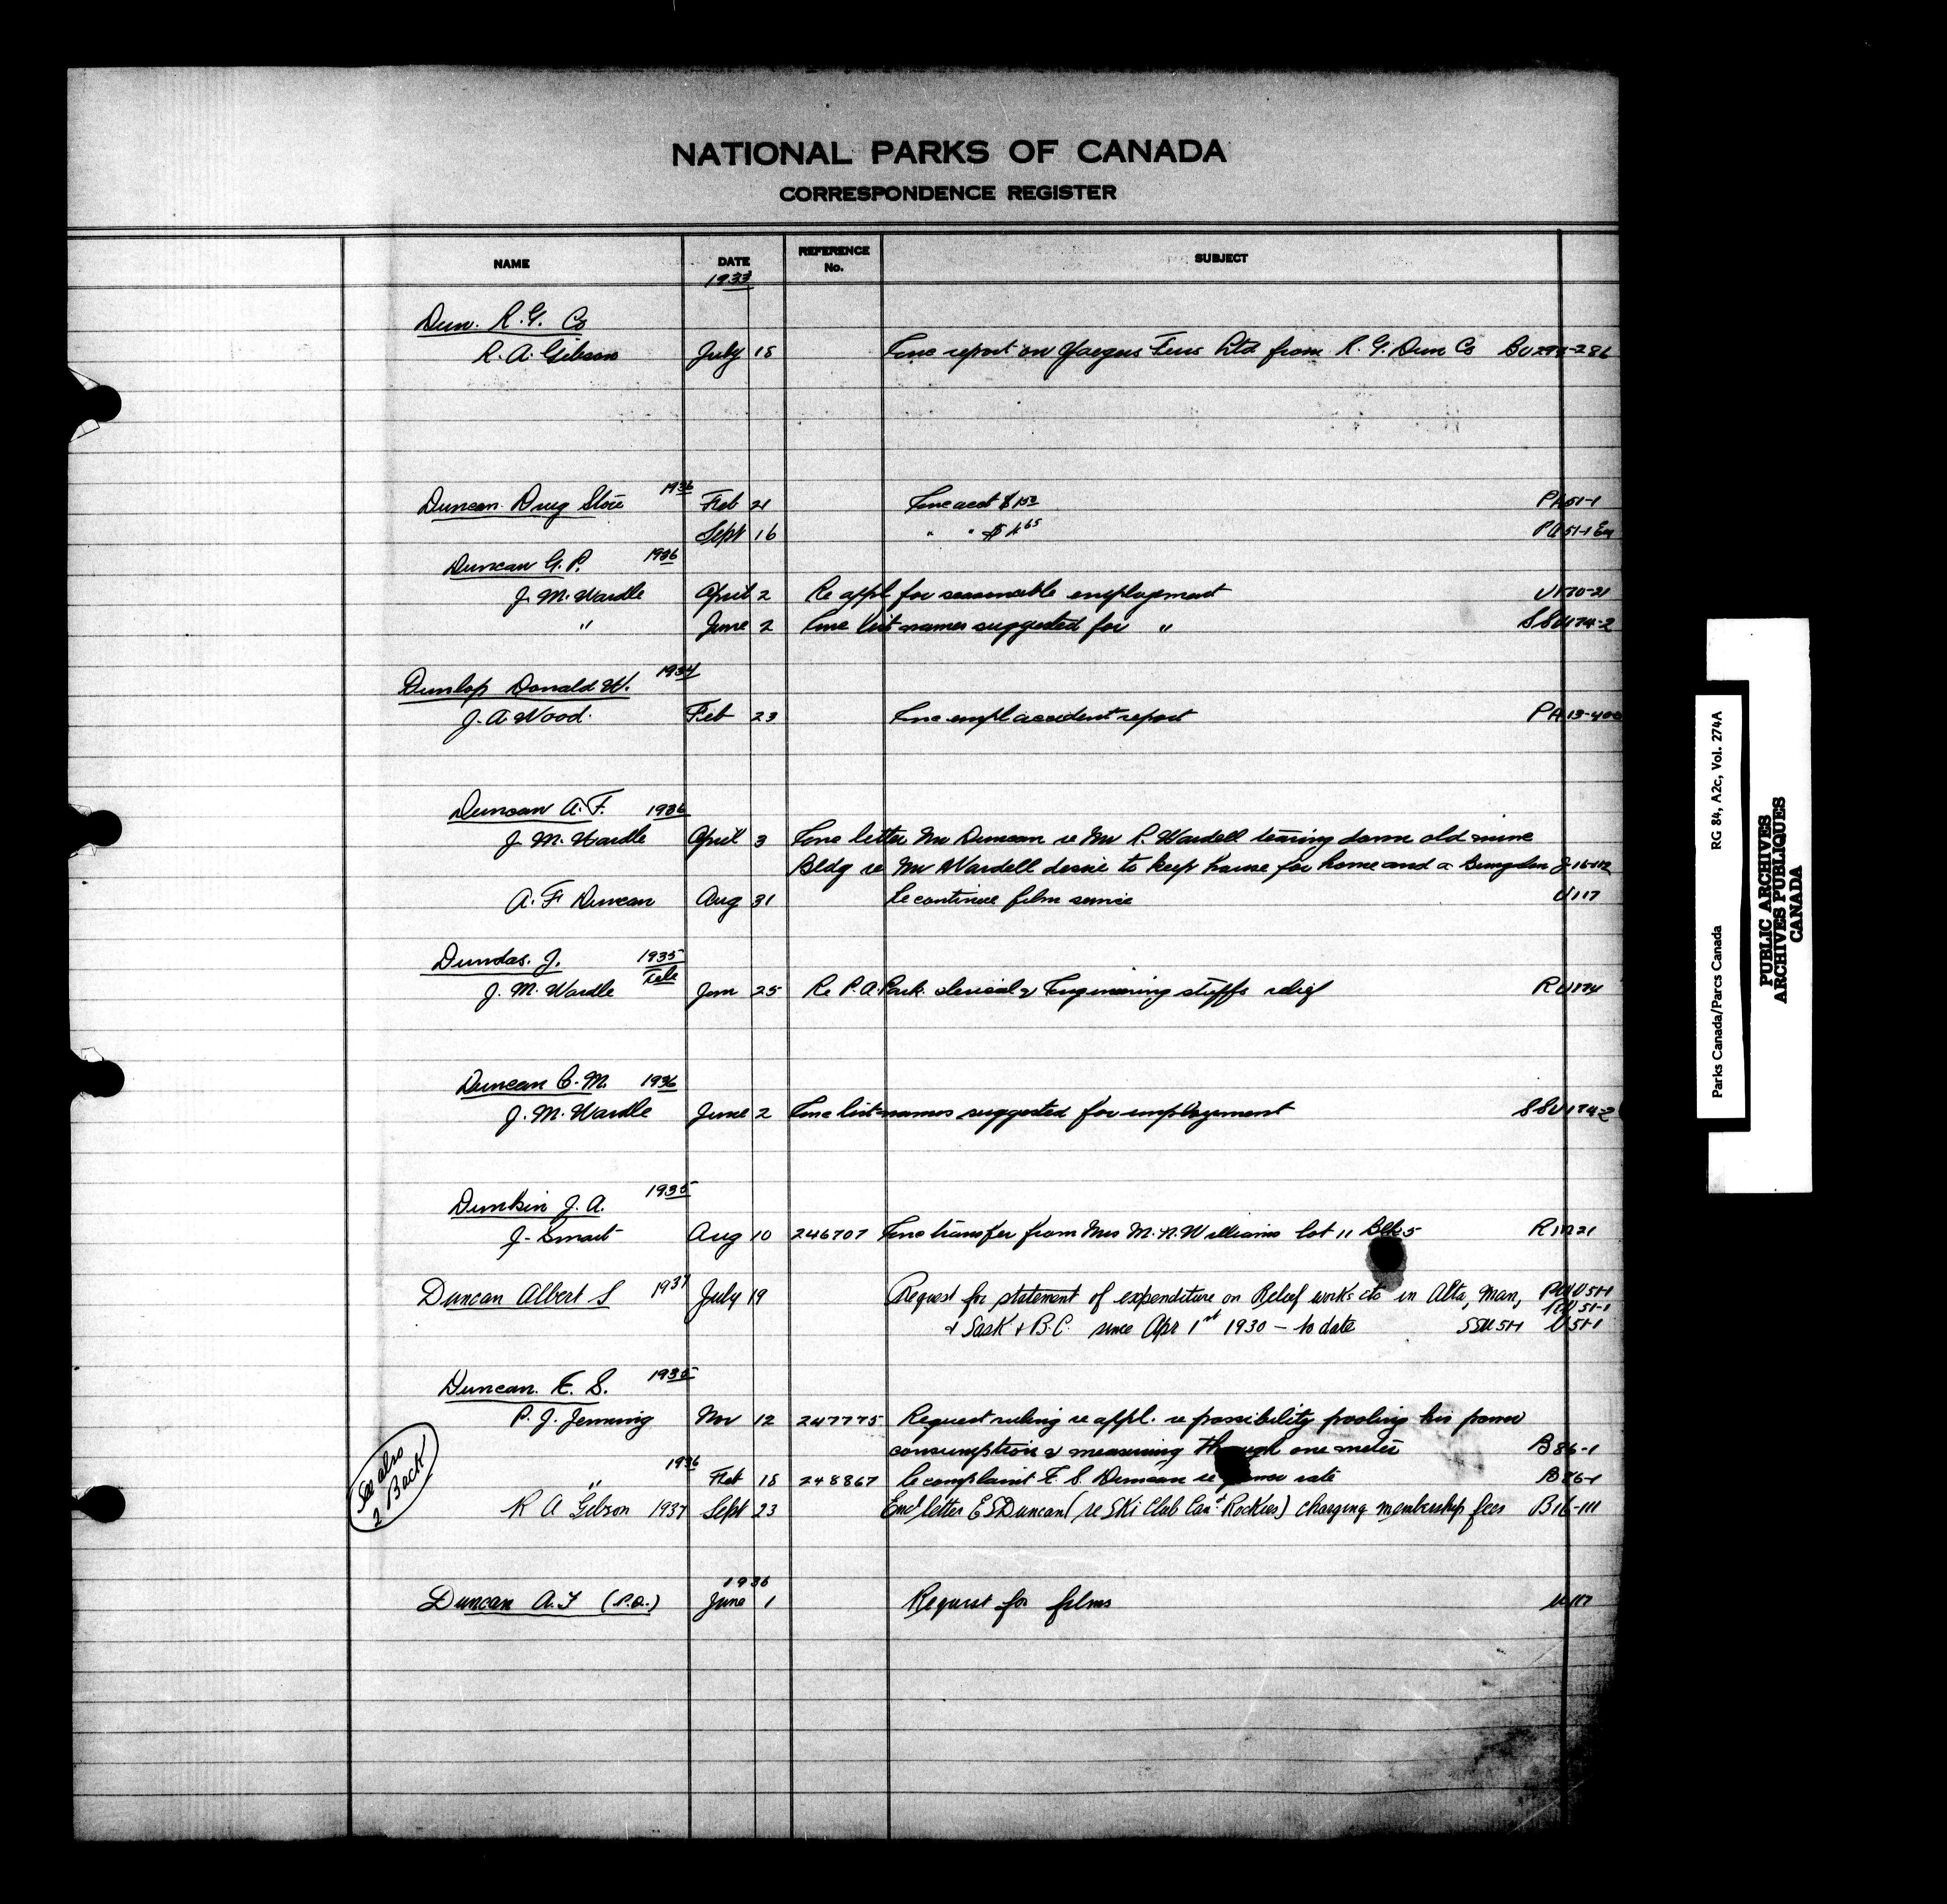 NATIONAL PARKS OF CANADA
CORRESPONDENCE REGISTER
NAME DATE REFERENCE No. SUBJECT
1933
Dun. R. G. Co
R. A. Gibson July 18 Enc report on Yaegers Furs Ltd from R. G. Dun Co
Duncan Drug Store 1936 Feb 21 Enc acct PA51-1
Sept 16 " "
Duncan G. P. 1936
J. M. Wardle April 2 Re appl for seasonable employment U170-21
" June 2 Enc list names suggested for " SSU174-2
Dunlop Donald W. 1934
J. A Wood. Feb 23 Enc empl accident report PA13-400
Duncan A. F. 1936
J. M. Wardle April 3 Enc letter Mr Duncan re Mr P. Wardell tearing down old mine
Bldg re Mr Wardell desire to keep house for home and a J16-112
A. F Duncan Aug 31 Re continue film service U117
Dundas. J. 1935
J. M. Wardle Tele Jan 25 Re P. A. Park clerical & Engineering stuffs relief RU174
Duncan C. M. 1936
J. M. Wardle June 2 Enc list names suggested for employment SSU174-2
Dunkin J. A. 1935
J. Smart Aug 10 246707 Enc transfer from Mrs M. N. Williams lot 11 Blk 5
Duncan Albert S 1937 July 19 Request for statement of expenditure on Relief works etc in Alta, Man,
& Sask & B.C. since Apr 1st 1930 - to date SSU51-1 U51-1
Duncan. E. S. 1935
P. J. Jenning Nov 12 247775 Request ruling re appl. re possibility pooling his power
consumption & measuring through one meter B86-1
See also
2 Back
" 1936 Feb 18 248867 Re complaint E. S. Duncan re power rate B86-1
R A Gibson 1937 Sept 23 Encl letter E S Duncan (re Ski Club Can Rockies) charging membership fees B16-111
1936
Duncan A. F (P.A.) June 1 Request for films U117
Parks Canada/Parcs Canada RG 84, A2c, Vol. 274A
PUBLIC ARCHIVES
ARCHIVES PUBLIQUES
CANADA